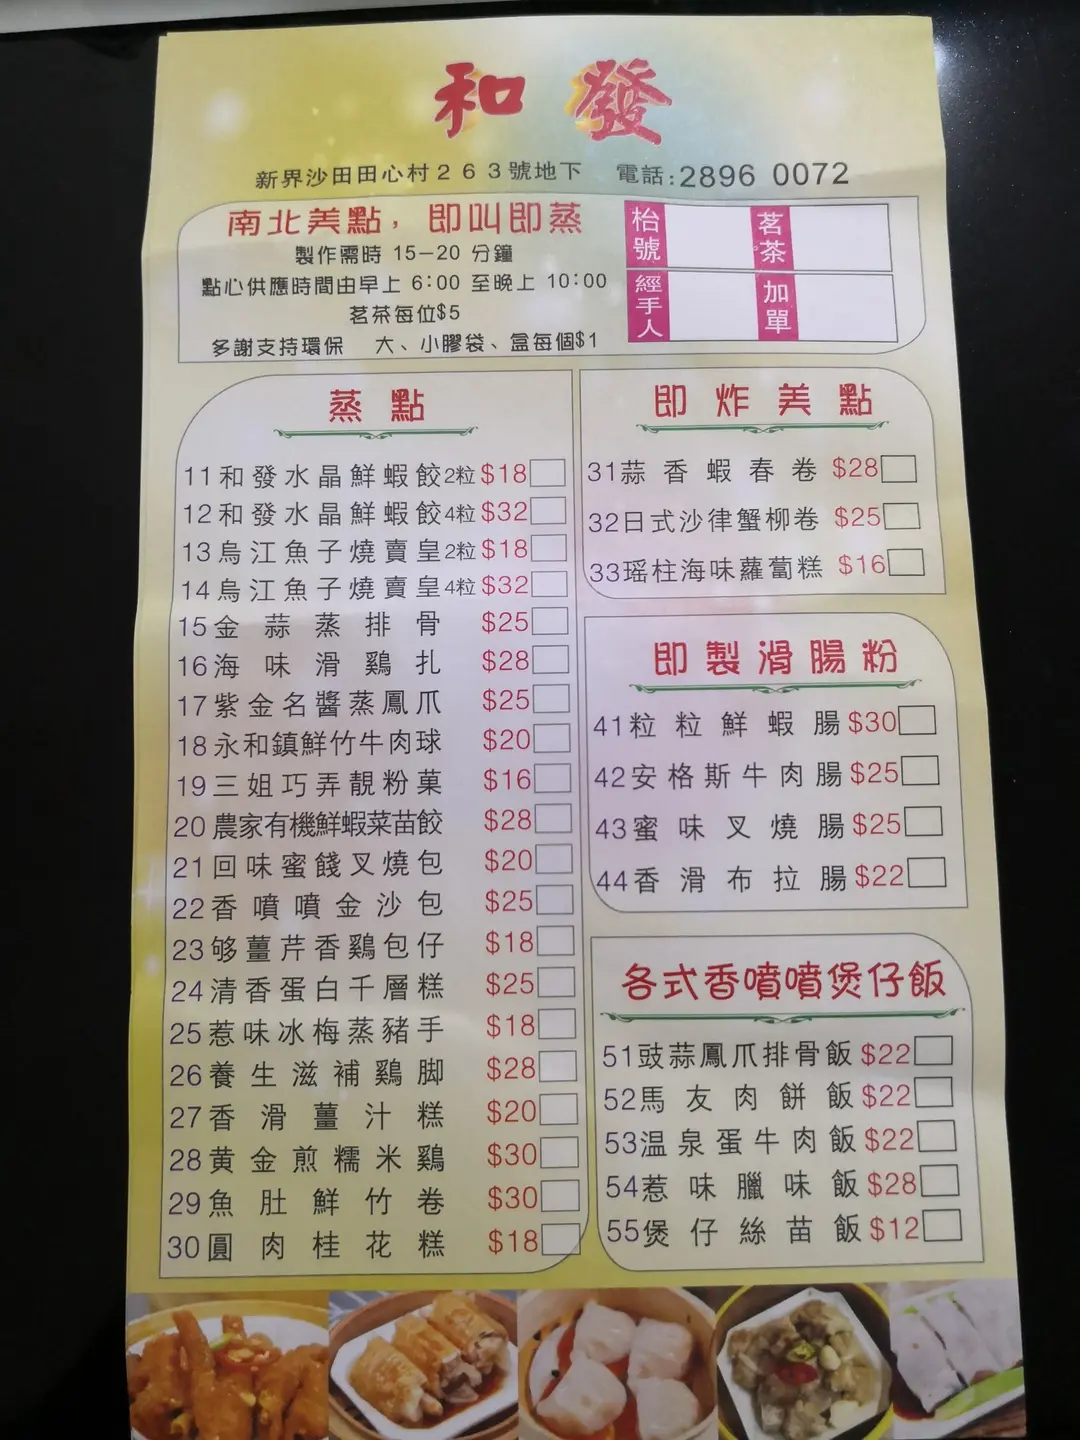 和發
新界沙田田心村263號地下 電話:2896 0072
南北美點，即叫即蒸
製作需時 15－20 分鐘
點心供應時間由早上 6:00 至晚上 10:00
茗茶每位$5
多謝支持環保 大、小膠袋、盒每個$1
枱號
茗茶
經手人
加單
蒸點
11和發水晶鮮蝦餃2粒 $18
12和發水晶鮮蝦餃4粒 $32
13烏江魚子燒賣皇2粒 $18
14烏江魚子燒賣皇4粒 $32
15金蒜蒸排骨 $25
16海味滑鷄扎 $28
17紫金名醬蒸鳳爪 $25
18永和鎮鮮竹牛肉球 $20
19三姐巧弄靚粉菓 $16
20農家有機鮮蝦菜苗餃 $28
21回味蜜餞叉燒包 $20
22香噴噴金沙包 $25
23够薑芹香鷄包仔 $18
24清香蛋白千層糕 $25
25惹味冰梅蒸豬手 $18
26養生滋補鷄脚 $28
27香滑薑汁糕 $20
28黄金煎糯米鷄 $30
29魚肚鮮竹卷 $30
30圓肉桂花糕 $18
即炸美點
31蒜香蝦春卷 $28
32日式沙律蟹柳卷 $25
33瑶柱海味蘿蔔糕 $16
即製滑腸粉
41粒粒鮮蝦腸 $30
42安格斯牛肉腸 $25
43蜜味叉燒腸 $25
44香滑布拉腸 $22
各式香噴噴煲仔飯
51豉蒜鳳爪排骨飯 $22
52馬友肉餅飯 $22
53温泉蛋牛肉飯 $22
54惹味臘味飯 $28
55煲仔絲苗飯 $12